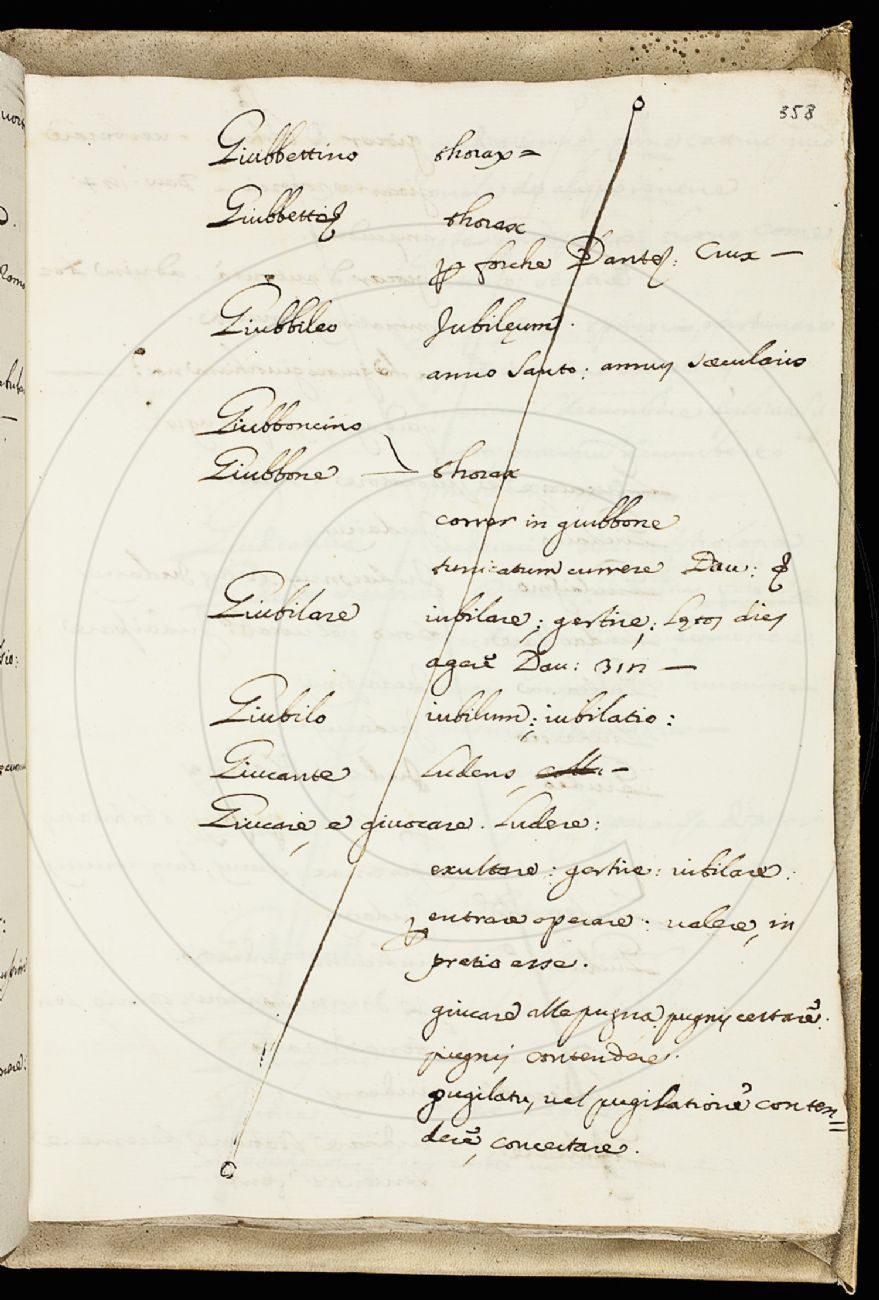 358
Giubbettino thorax =
Giubbetto thorax
per forche Dante: Crux —
Giubbileo Jubilęum.
anno santo: annus sæcularis
Giubboncino
Giubbone — thorax
correr in giubbone
tunicatum currere Dau:
Giubilare iubilare; gestire; Lętos dies
agere Dau: 311 —
Giubilo iubilum; iubilatio:
Giucante Ludens, —
Giucare, e giuocare. Ludere:
exultare: gestire: iubilare:
p entrare operare: ualere, in
pretio esse.
giucare alle pugna pugnis certare:
pugnis contendere.
pugilatu, uel pugilatione conten=
dere, concertare.